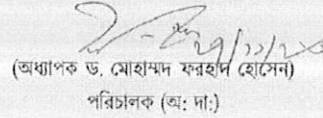 (অধ্যাপক ড. মোহাম্মদ ফরহাদ হোসেন)
পরিচালক (অ: দা:)